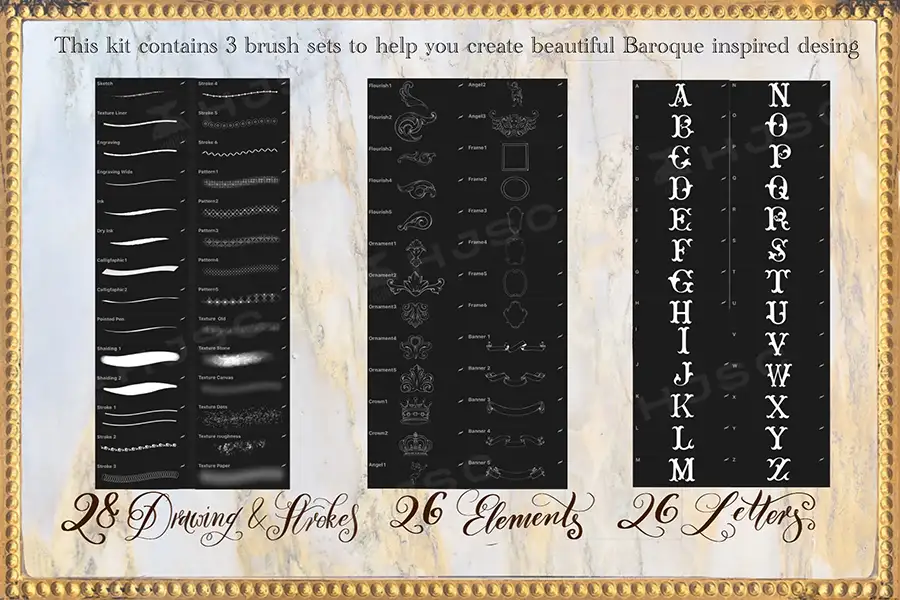 This kit contains 3 brush sets to help you create beautiful Baroque inspired desing
Sketch
Texture Liner
Engraving
Engraving Wide
Ink
Dry Ink
Calligtaphic1
Calligtaphic2
Painted Pen
Shaiding 1
Shaiding 2
Stroke 1
Stroke 2
Stroke 3
Stroke 4
Stroke 5
Stroke 6
Pattern1
Pattern2
Pattern3
Pattern4
Pattern5
Texture Old
Texture Stone
Texture Canvas
Texture Dots
Texture roughness
Texture Paper
Fleurish1
Fleurish2
Fleurish3
Fleurish4
Fleurish5
Ornament1
Ornament2
Ornament3
Ornament4
Ornament5
Crown1
Crown2
Angel1
Angel2
Angel3
Frame1
Frame2
Frame3
Frame4
Frame5
Frame6
Banner 1
Banner 2
Banner 3
Banner 4
Banner 5
A
B
C
D
E
F
G
H
I
J
K
L
M
N
O
P
Q
R
S
T
U
V
W
X
Y
Z
28 Drawing & Strokes
26 Elements
26 Letters